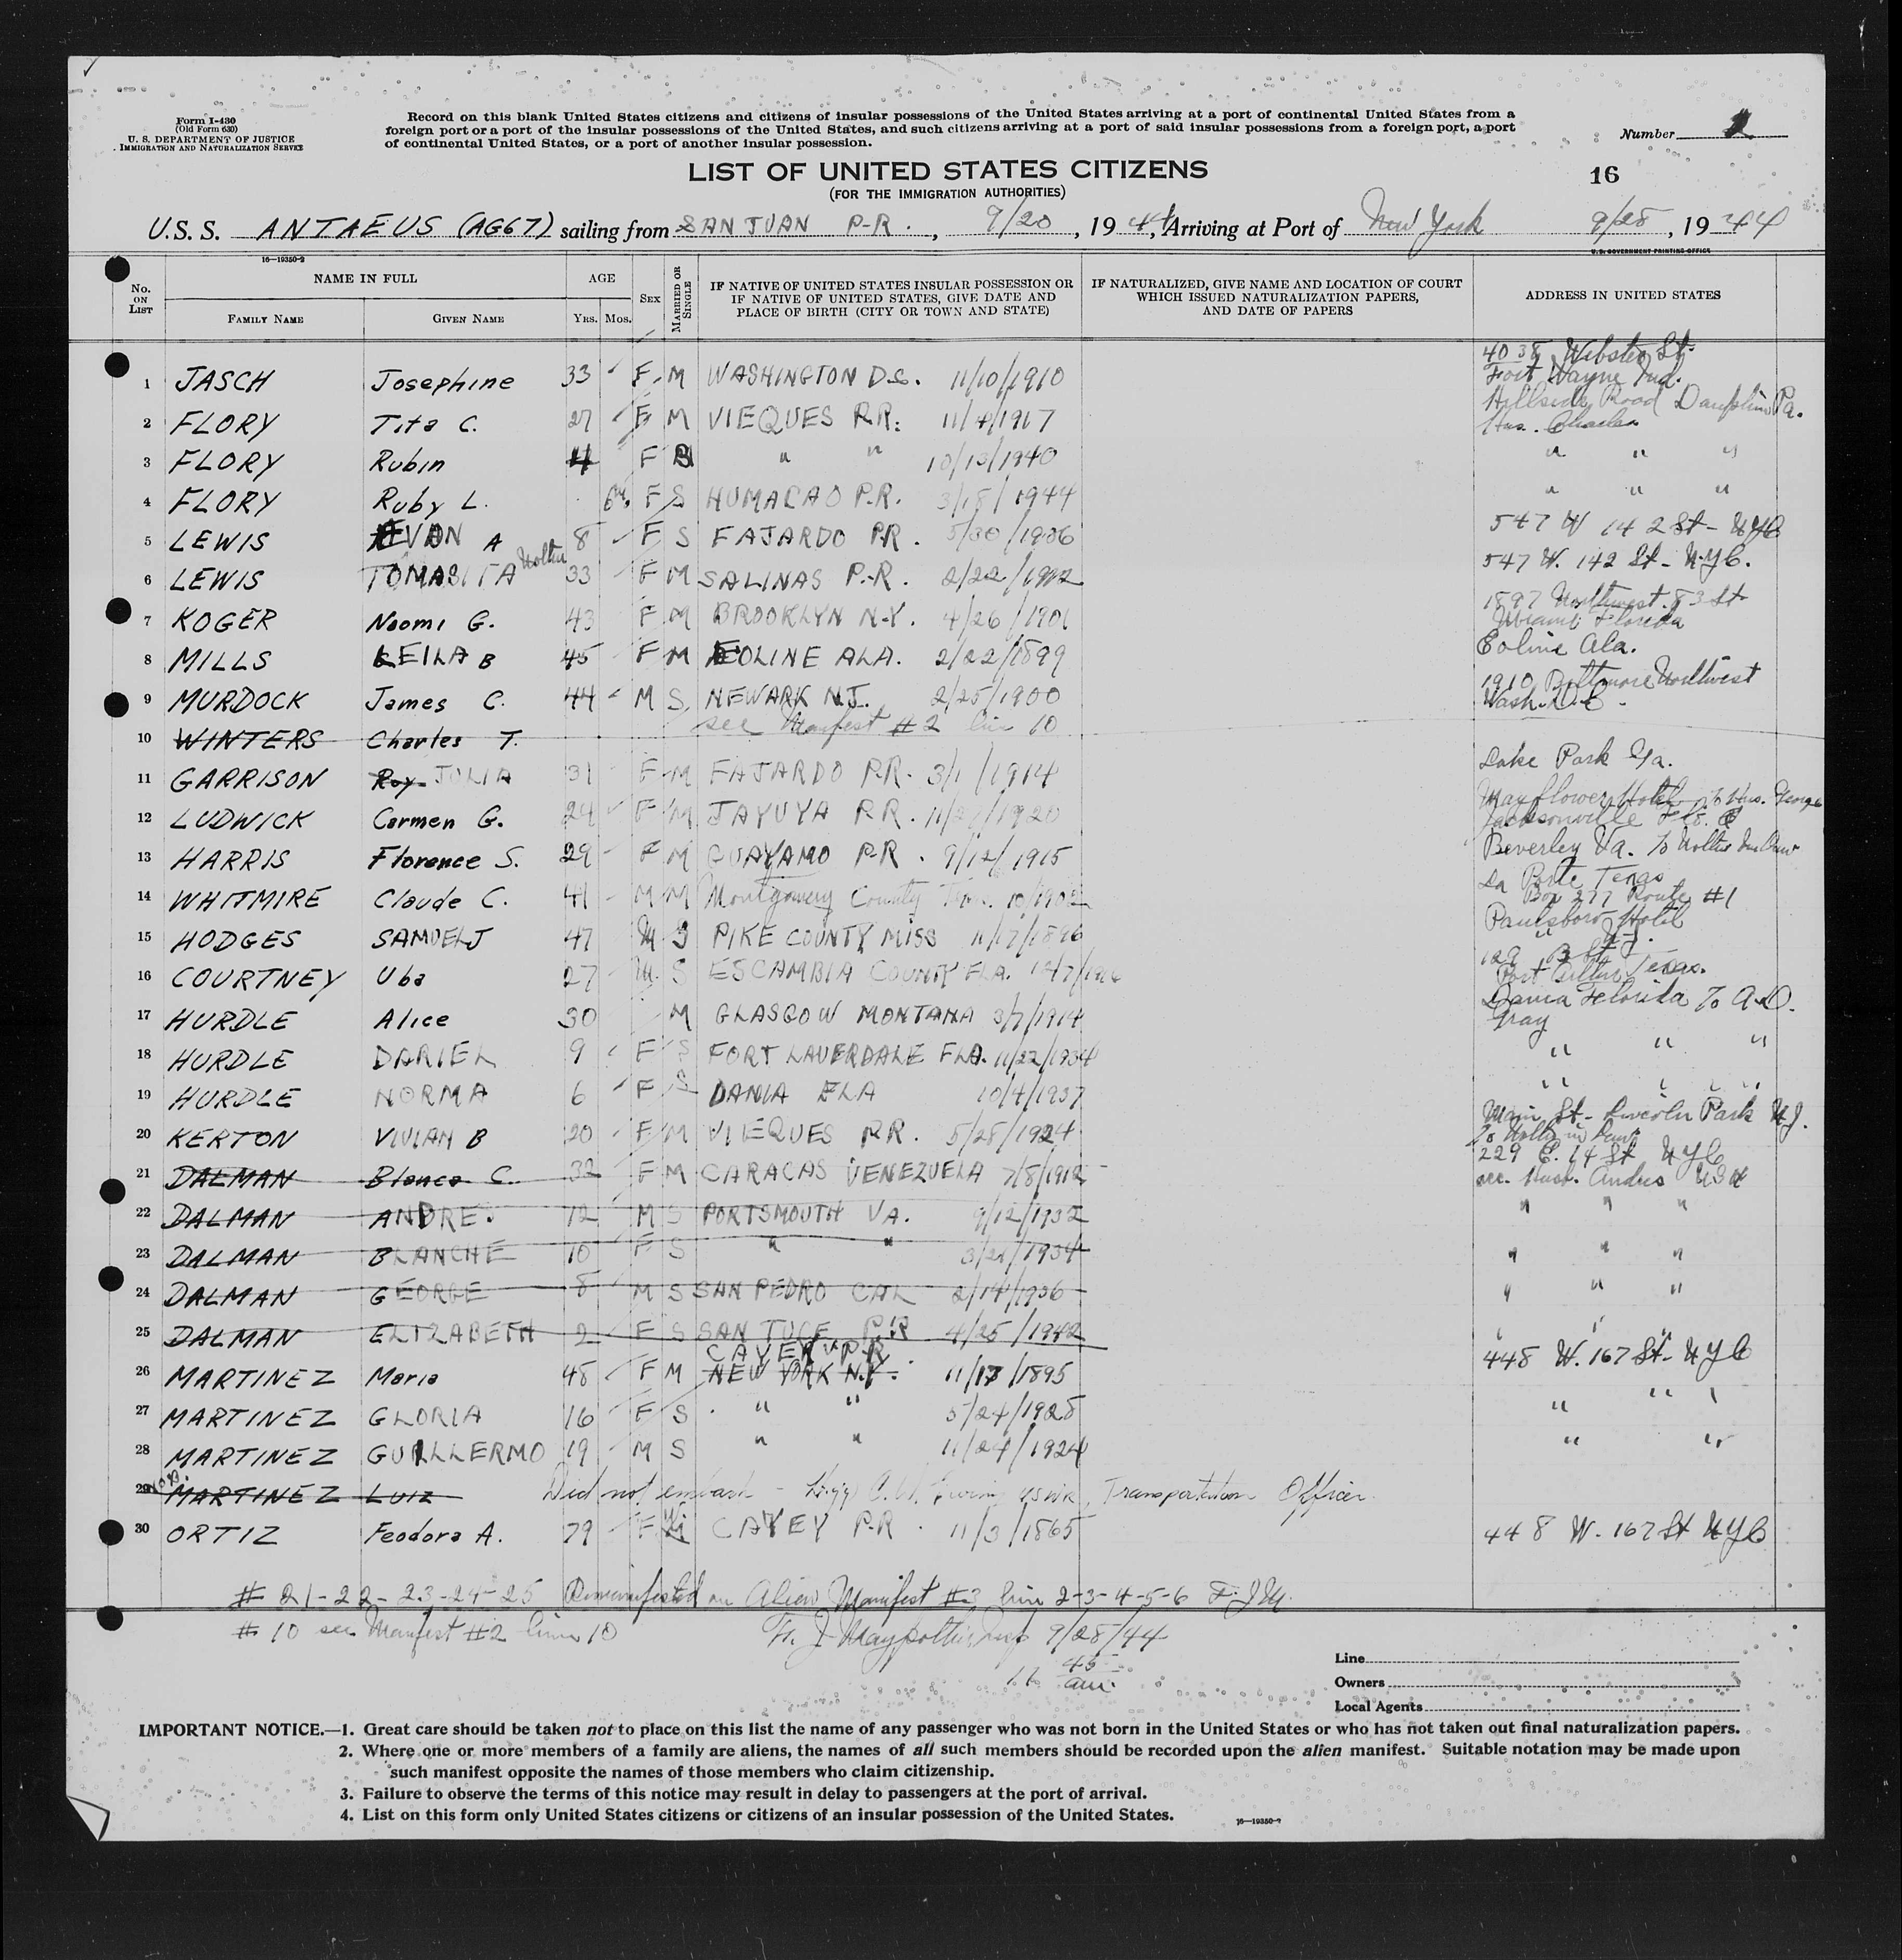 Form I-430
(Old Form 630)
U. S. DEPARTMENT OF JUSTICE
IMMIGRATION AND NATURALIZATION SERVICE
Record on this blank United States citizens and citizens of insular possessions of the United States arriving at a port of continental United States from a
foreign port or a port of the insular possessions of the United States, and such citizens arriving at a port of said insular possessions from a foreign port, a port
of continental United States, or a port of another insular possession.
Number
16
LIST OF UNITED STATES CITIZENS
(FOR THE IMMIGRATION AUTHORITIES)
U.S.S. ANTAEUS (AG67) sailing from SAN JUAN P-R. , 9/20 , 1944, Arriving at Port of New York 9/28 , 1944
U.S. GOVERNMENT PRINTING OFFICE
16—19350-2
No. ON LIST NAME IN FULL AGE SEX MARRIED OR SINGLE IF NATIVE OF UNITED STATES INSULAR POSSESSION OR IF NATIVE OF UNITED STATES, GIVE DATE AND PLACE OF BIRTH (CITY OR TOWN AND STATE) IF NATURALIZED, GIVE NAME AND LOCATION OF COURT WHICH ISSUED NATURALIZATION PAPERS, AND DATE OF PAPERS ADDRESS IN UNITED STATES
FAMILY NAME GIVEN NAME YRS. MOS.
1 JASCH Josephine 33 F M WASHINGTON D.C. 11/10/1910 4038 Webster St. Fort Wayne Ind.
2 FLORY Tita C. 27 F M VIEQUES P.R. 11/4/1917 Hillside Road Dauphin Pa. Hus. Charles
3 FLORY Rubin 4 F S " " 10/13/1940 " " "
4 FLORY Ruby L. 6M. F S HUMACAO P.R. 3/18/1944 " " "
5 LEWIS EVAN A 8 F S FAJARDO P.R. 5/30/1936 547 W 142 St - NYC
6 LEWIS TOMASITA Mother 33 F M SALINAS P.-R. 2/22/1912 547 W. 142 St - N.Y.C.
7 KOGER Naomi G. 43 F M BROOKLYN N-Y. 4/26/1901 1897 Northwest. 83 St Miami Florida
8 MILLS LEILA B 45 F M EOLINE ALA. 2/22/1899 Eoline Ala.
9 MURDOCK James C. 44 M S NEWARK N.J. 2/25/1900 1910 Baltimore Northwest Wash. D.C.
10 WINTERS Charles T. see Manifest #2 line 10
11 GARRISON Roy JULIA 31 F M FAJARDO P.R. 3/1/1914 Lake Park Ga.
12 LUDWICK Carmen G. 24 F M JAYUYA P.R. 11/2 /1920 Mayflower Hotel To Hus. George Jacksonville Flo.
13 HARRIS Florence S. 29 F M GUAYAMO P-R. 9/12/1915 Beverley Va. To Mother in Law
14 WHITMIRE Claude C. 41 M M Montgomery County 10/1902 La Porte Texas Box 277 Route #1
15 HODGES SAMUEL J 47 M S PIKE COUNTY MISS 11/17/1896 Paulsboro Hotel " N.J.
16 COURTNEY Uba 27 M. S ESCAMBIA COUNTY FLA. 129 B St Port Arthur Texas.
17 HURDLE Alice 30 M GLASGOW MONTANA 3/7/1914 Dania Florida To A.D. Gray
18 HURDLE DARIEL 9 F S FORT LAUDERDALE FLA. 11/22/1934 " " "
19 HURDLE NORMA 6 F S DANIA FLA 10/4/1937 " " " "
20 KERTON VIVIAN B 20 F M VIEQUES P.R. 5/25/1924 Main St - Lincoln Park N.J. To Mother in Law
21 DALMAN Blanca C. 32 F M CARACAS VENEZUELA 7/8/1912 229 E. 14 St NYC acc. Husb. Andres USN
22 DALMAN ANDRES 12 M S PORTSMOUTH VA. 9/12/1932 " " "
23 DALMAN BLANCHE 10 F S " " 3/21/1934 " " "
24 DALMAN GEORGE 8 M S SAN PEDRO CAL 2/14/1936 " " "
25 DALMAN ELIZABETH 2 F S SAN TUCE P.R 4/25/1942 " " "
26 MARTINEZ Maria 48 F M CAYEY P-R NEW YORK N.Y. 11/17/1895 448 W. 167 St - NYC
27 MARTINEZ GLORIA 16 F S " " 5/24/1928 " " "
28 MARTINEZ GUILLERMO 19 M S " " 11/24/1924 " "
29 MARTINEZ LUIZ Did not embark - Transportation Officer.
30 ORTIZ Feodora A. 79 F CAYEY P-R. 11/3/1865 448 W. 167 St NYC
# 21-22-23-24-25 Remanifested on Alien Manifest #3 line 2-3-4-5-6 F.J.M.
# 10 see Manifest #2 line 10 9/28/44
45
am.
Line
Owners
Local Agents
IMPORTANT NOTICE.—1. Great care should be taken not to place on this list the name of any passenger who was not born in the United States or who has not taken out final naturalization papers.
2. Where one or more members of a family are aliens, the names of all such members should be recorded upon the alien manifest. Suitable notation may be made upon
such manifest opposite the names of those members who claim citizenship.
3. Failure to observe the terms of this notice may result in delay to passengers at the port of arrival.
4. List on this form only United States citizens or citizens of an insular possession of the United States.
16—19350-2